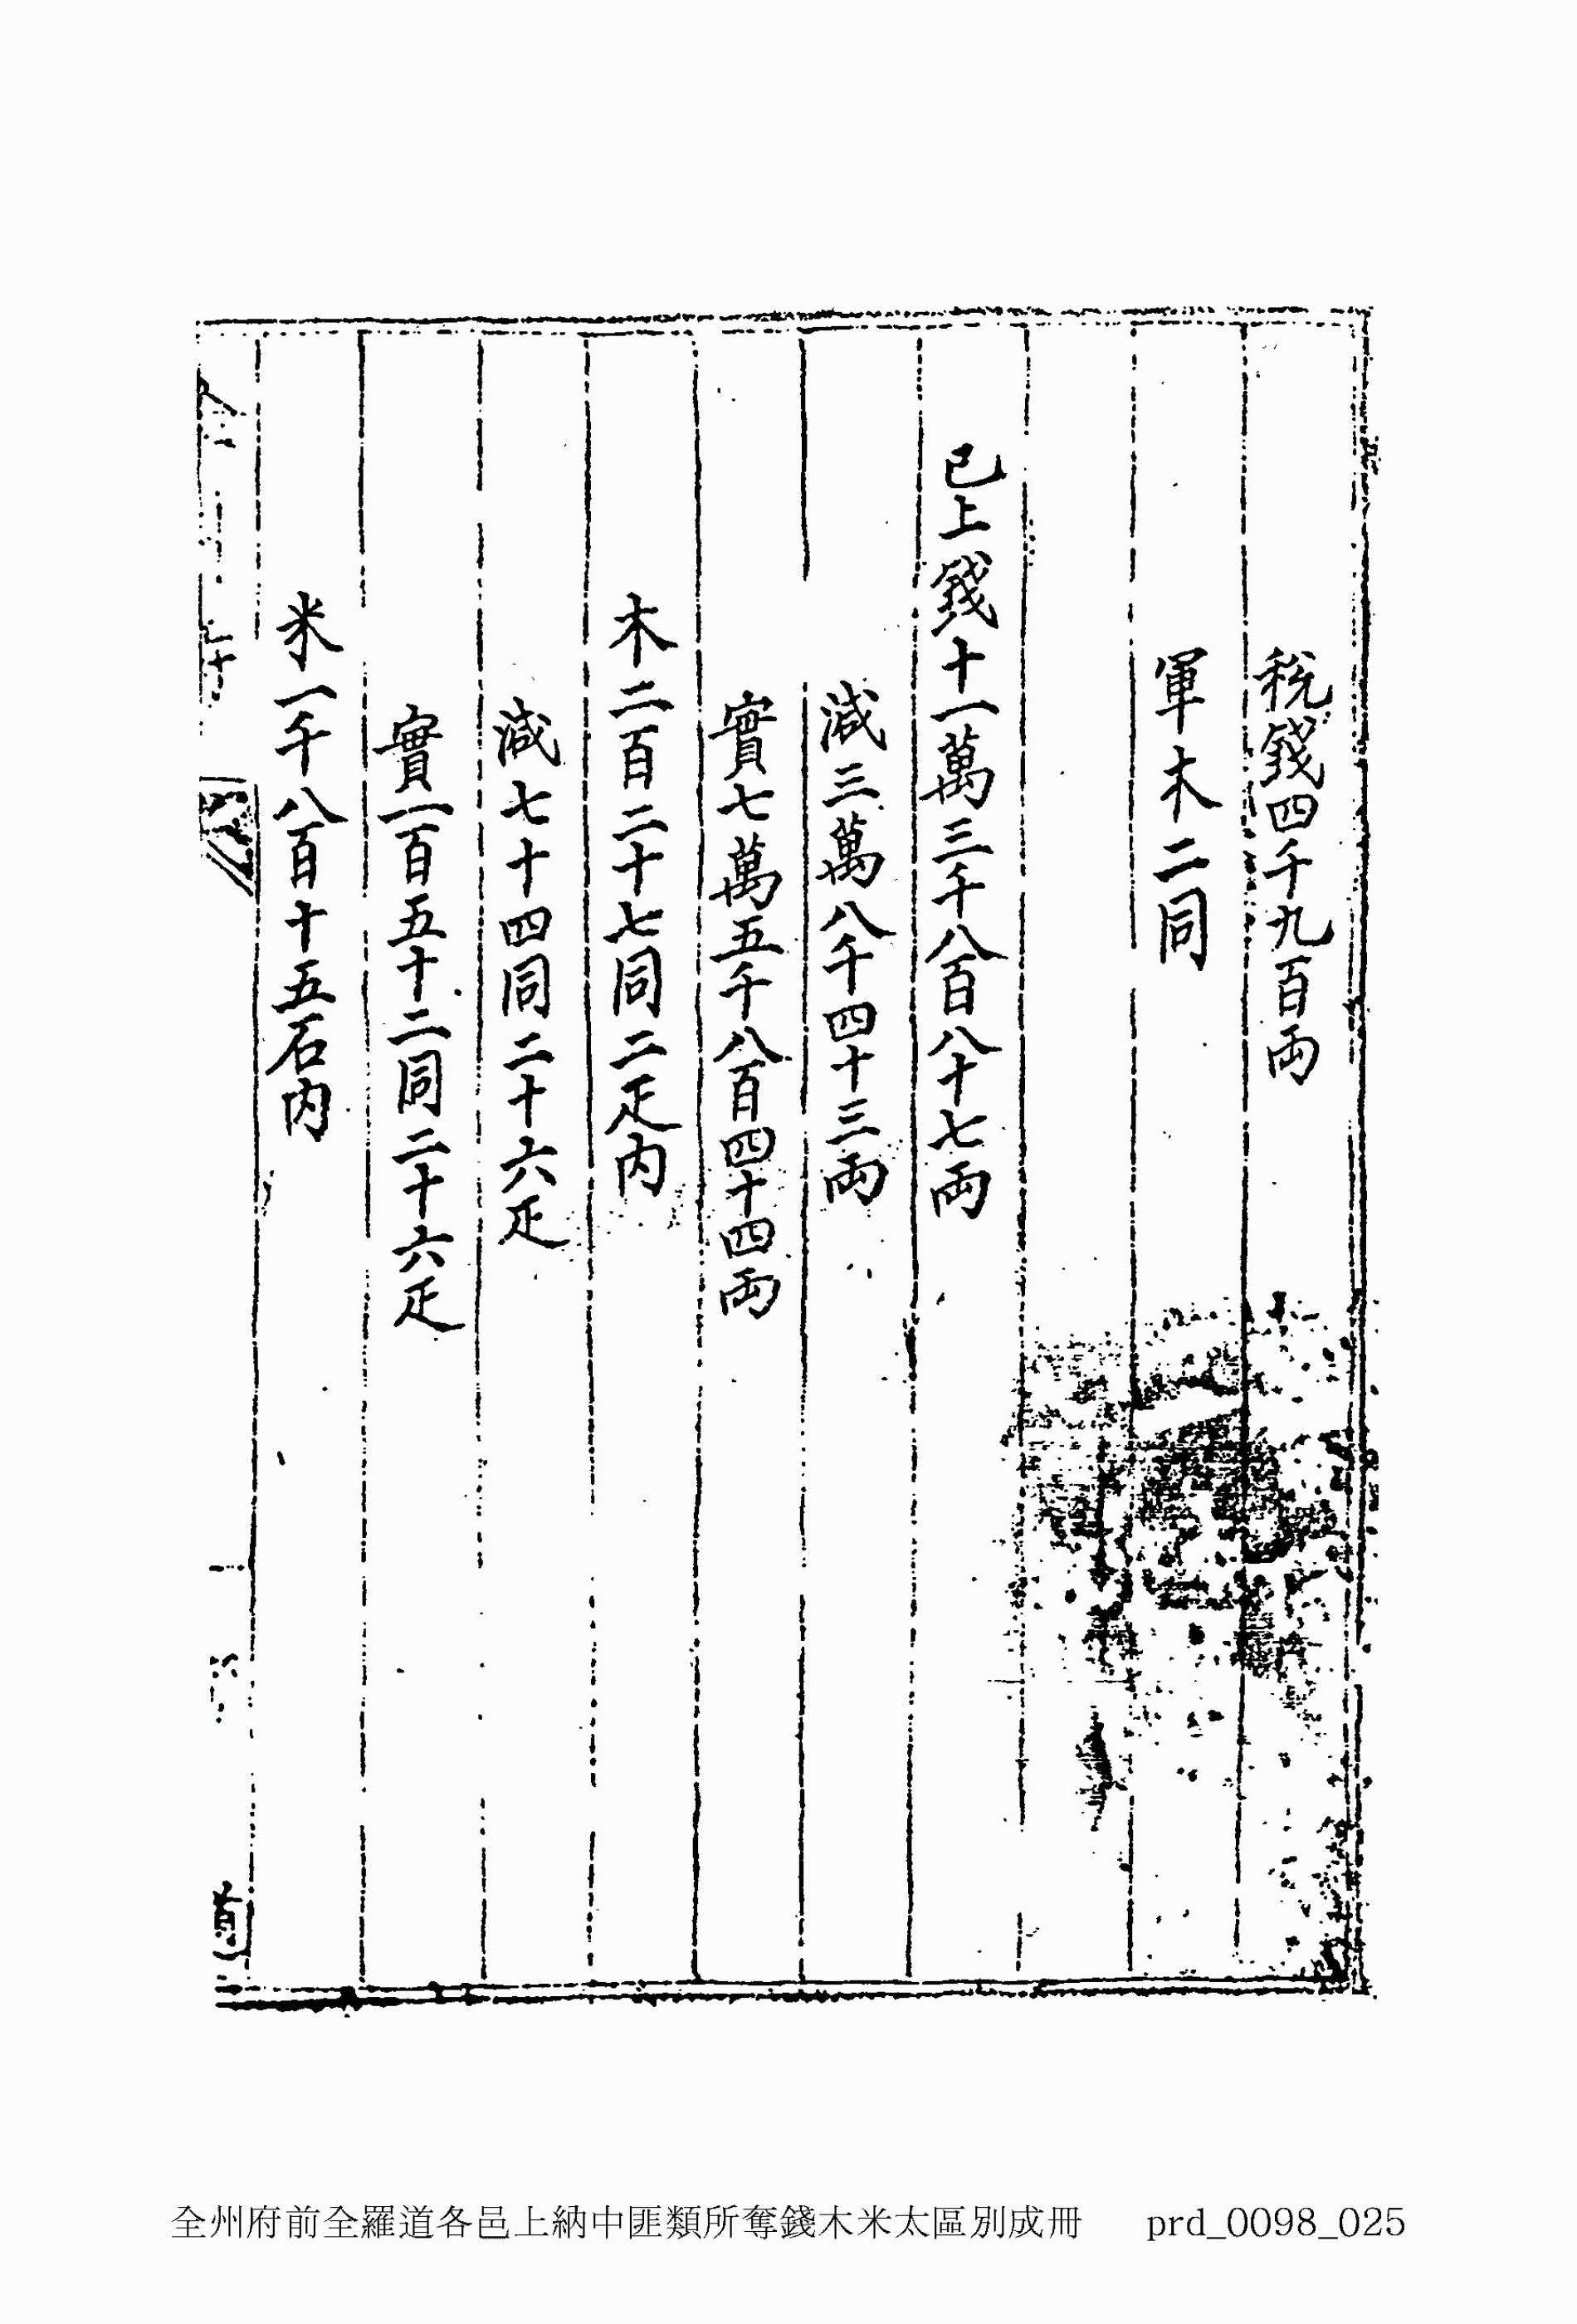 稅錢四千九百両
軍木二同
已上錢十一萬三千八百八十七両
減三萬八千四十三両
實七萬五千八百四十四両
木二百二十七同二疋内
減七十四同二十六疋
實一百五十二同二十六疋
米一千八百十五石内
全州府前全羅道各邑上納中匪類所奪錢木米太區別成冊 prd_0098_025